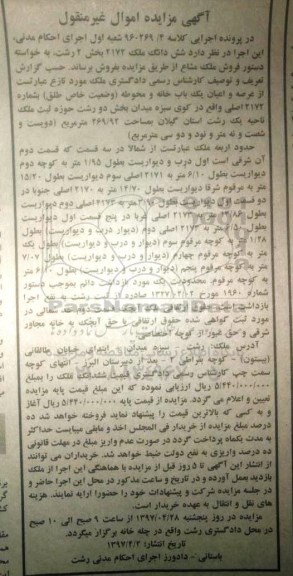 آگهی مزایده اموال غیرمنقول
در پرونده اجرایی کلاسه ۹۶۰۲۶۹/۴ شعبه اول اجرای احکام مدنی،
این اجرا در نظر دارد شش دانگ ملک ۲۱۷۲ بخش ۲ رشت، به خواسته
دستور فروش ملک مشاع از طریق مزایده بفروش برساند. حسب گزارش
تعریف و توصیف کارشناس رسمی دادگستری ملک مورد نازع عبارتست
از عرصه و اعیان یک باب خانه و محوطه (وضعیت خاص طلق) بشماره
۲۱۷۲ اصلی واقع در کوی سبزه میدان بخش دو رشت حوزه ثبت ملک
ناحیه یک رشت استان گیلان بمساحت ۲۶۹/۹۲ مترمربع (دویست و
شصت و نه متر و نود و دو سی مترمربع)
حدود اربعه ملک عبارتست از شمالا در سه قسمت که قسمت دوم
آن شرقی است اول درب و دیواریست بطول ۱/۹۵ متر به کوچه دوم
دیواریست بطول ۶/۱۰ متر به ۲۱۷۱ اصلی سوم دیواریست بطول ۱۵/۲۰
متر به مرقوم شرقا دیواریست بطول ۱۴/۷۰ متر به ۲۱۷۰ اصلی جنوبا در
دو قسمت اول دیواریست بطول متر به اصلی دوم دیواریست
بطول متر به ۲۱۷۳ اصلی غربا در پنج قسمت اول دیواریست
بطول متر به ۲۱۷۳ اصلی دوم (دیوار درب و دیواریست) بطول
متر به کوچه مرقوم سوم (دیوار و درب و دیواریست) بطول یک
متر به کوچه مرقوم چهارم (دیوار و درب و دیواریست) بطول ۷/۰۷
متر به کوچه مرقوم پنجم (دیوار و درب و دیواریست) بطول
متر به کوچه مرقوم. محدودیت یک مورد بازداشت دائم بموجب دستور
شماره ۱۹۶۰ مورخ صادره رشت به نفع اجرا
بازداشت
مورد ثبت گواهی شده حقوق ارتفاقی با حق آبچک به خانه مجاور
شرقی و حق عبور از کوچه اختصاصی
آدرس ملک: رشت، سبزه میدان، ابتدای خیابان طالقانی
(بیستون) کوچه بعد از دبیرستان البرز، انتهای کوچه
سمت چپ کارشناس رسمی دادگستری قیمت ملک را بمبلغ
۵/۴۴۰/۰۰۰/۰۰۰ ریال ارزیابی نموده که این مبلغ قیمت پایه مزایده
تعیین و اعلام می گردد. مزایده از قیمت پایه ۵/۴۴۰/۰۰۰/۰۰۰ ریال آغاز
و به کسی که بالاترین قیمت را پیشنهاد نماید فروخته خواهد شد ده
درصد مبلغ مزایده از خریدار فی المجلس اخذ و مابقی میبایست حداکثر
به مدت یکماه پرداخت گردد در صورت عدم واریز مبلغ در مهلت قانونی
ده درصد واریزی به نفع دولت ضبط خواهد شد. خریداران می توانند
از انتشار این آگهی تا ۵ روز قبل از مزایده با هماهنگی این اجرا از ملک
بازدید بعمل آورده و در تاریخ و ساعت مذکور در محل این اجرا حاضر و
در جلسه مزایده شرکت و پیشنهادات خود را حضورا ارایه نمایند. هزینه
های نقل و انتقال به عهده خریدار است.
مزایده در روز پنجشنبه ۱۳۹۷/۰۴/۲۸ از ساعت ۹ صبح الی ۱۰ صبح
در محل دادگستری رشت واقع در چله خانه برگزار میگردد.
تاریخ انتشار: ۱۳۹۷/۴/۲
باستانی - دادورز اجرای احکام مدنی رشت